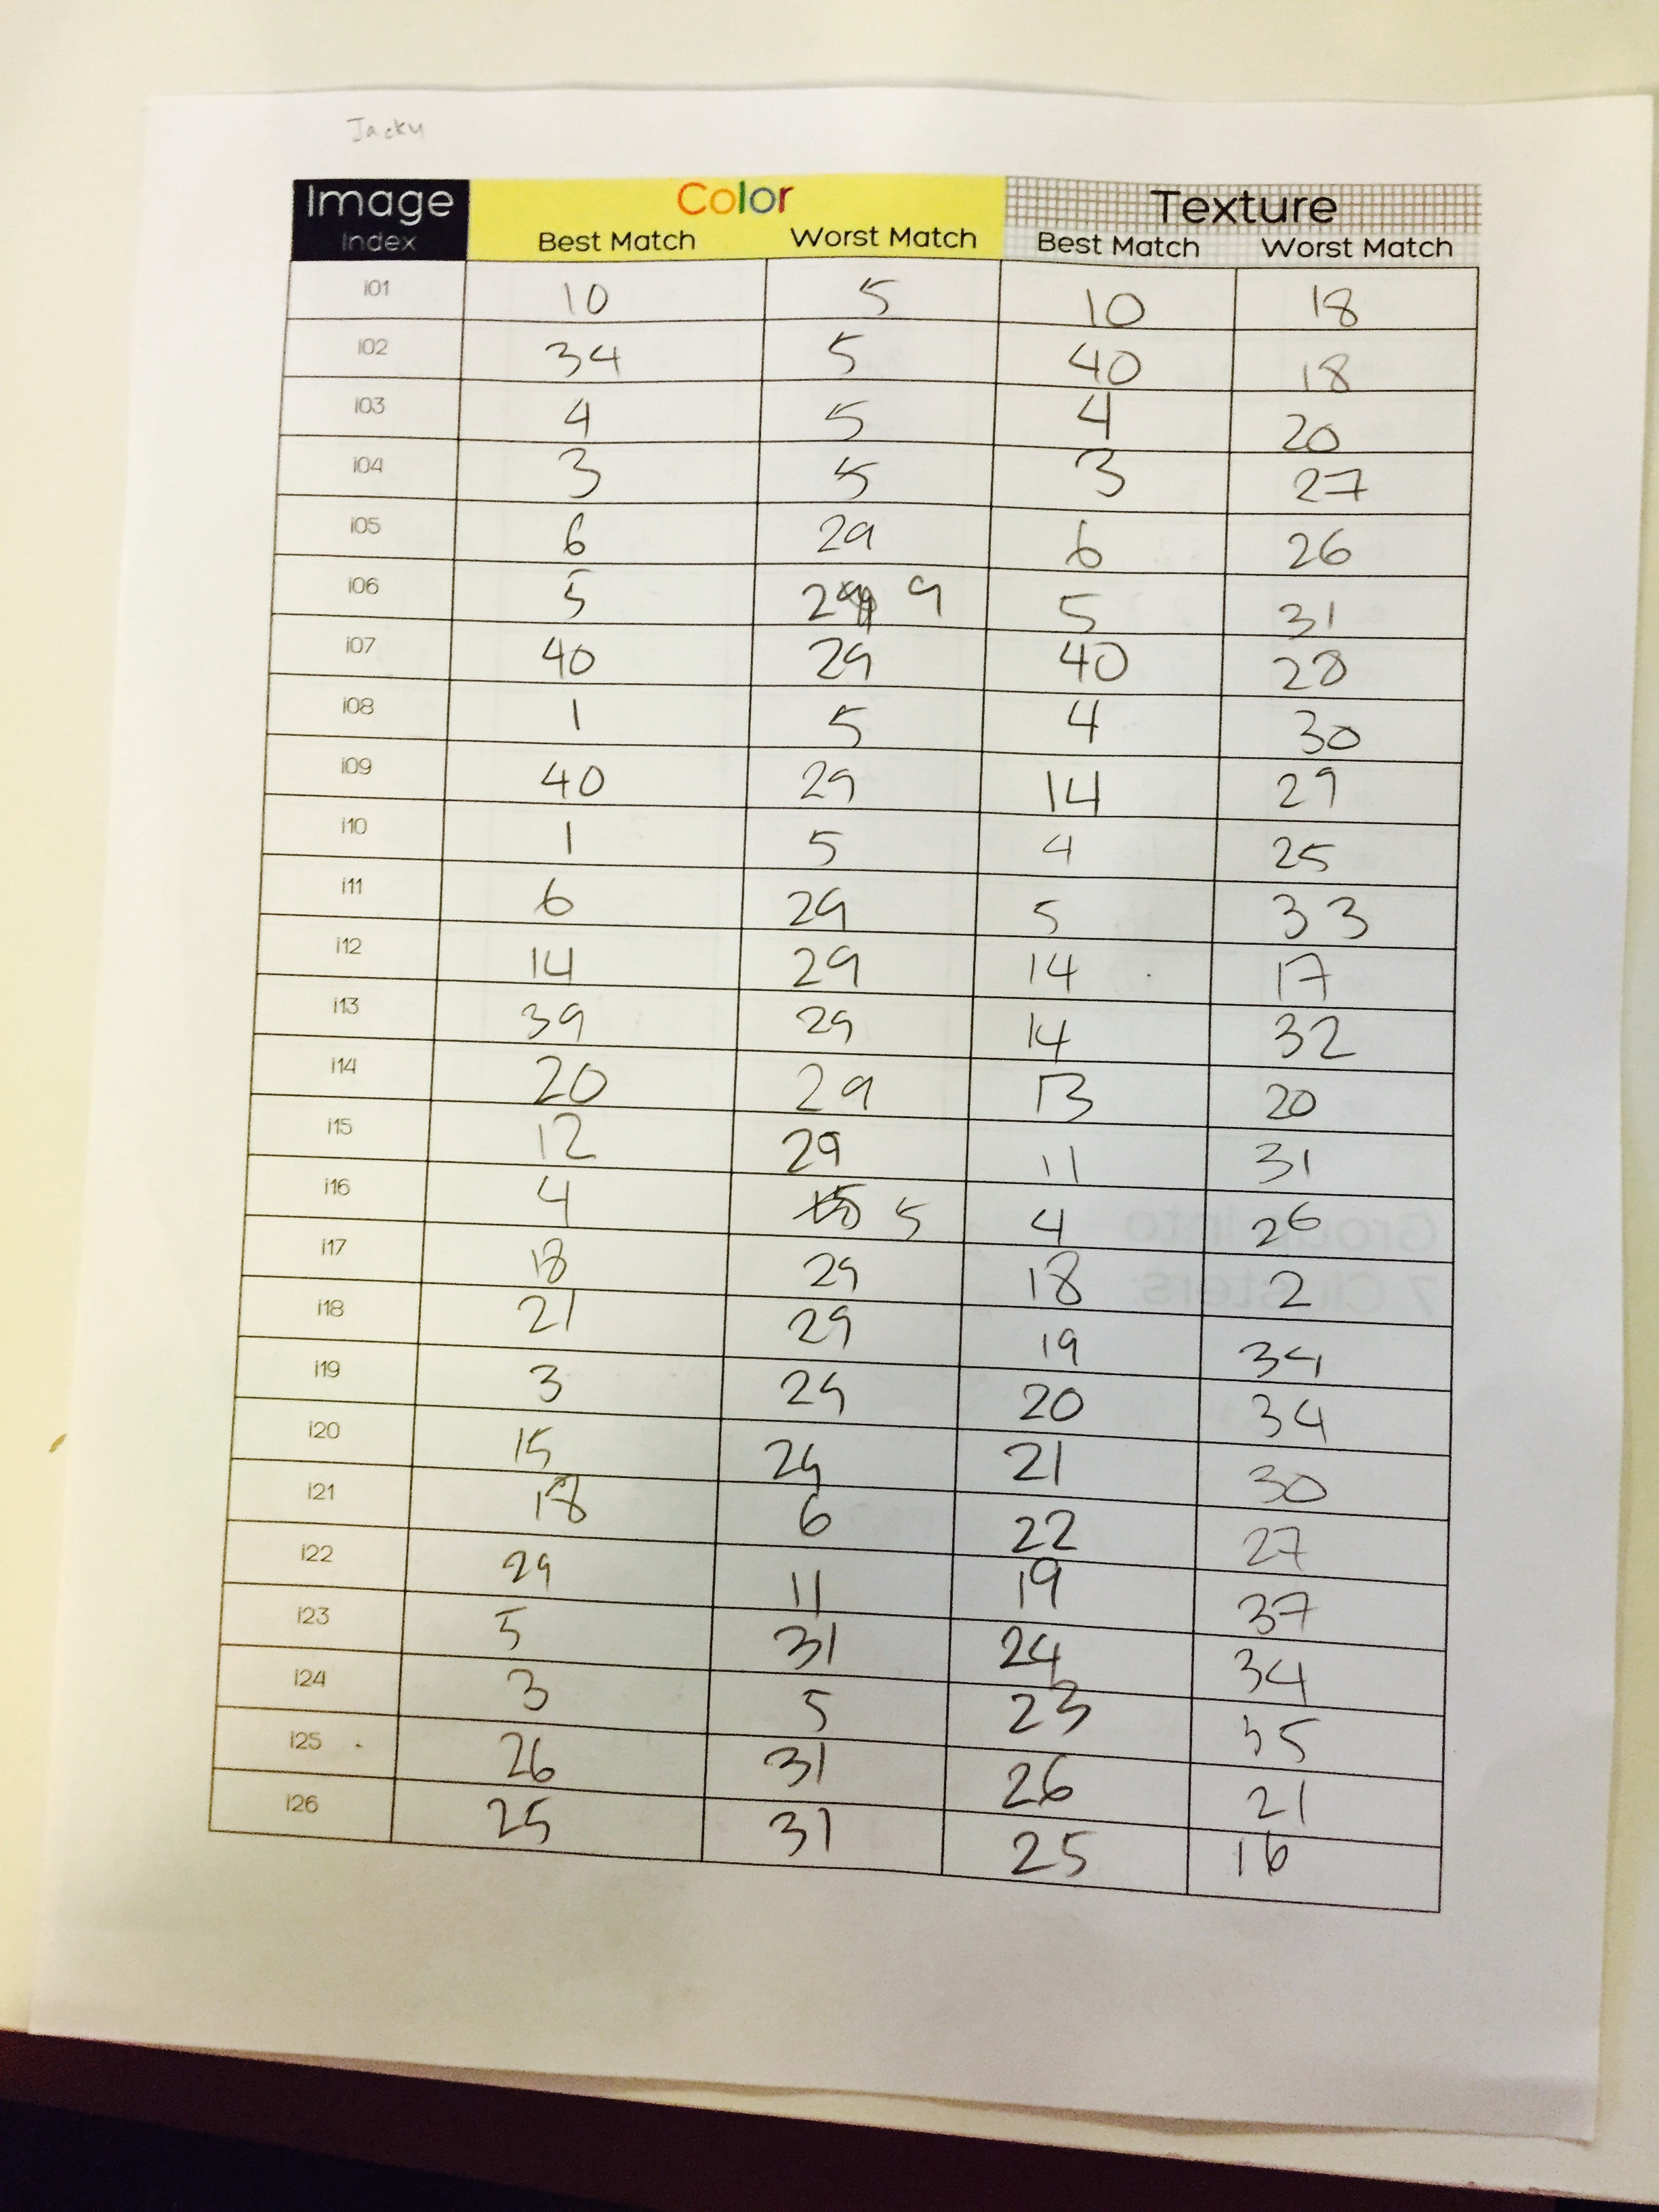 Jacky
Image Color Texture
Index Best Match Worst Match Best Match Worst Match
i01 10 5 10 18
i02 34 5 40 18
i03 4 5 4 20
i04 3 5 3 27
i05 6 29 6 26
i06 5 29 9 5 31
i07 40 29 40 28
i08 1 5 4 30
i09 40 29 14 29
i10 1 5 4 25
i11 6 29 5 33
i12 14 29 14 17
i13 39 29 14 32
i14 20 29 13 20
i15 12 29 11 31
i16 4 5 4 26
i17 18 29 18 2
i18 21 29 19 34
i19 3 29 20 34
i20 15 29 21 30
i21 18 6 22 27
i22 29 11 19 37
i23 5 31 24 34
i24 3 5 23 35
i25 26 31 26 21
i26 25 31 25 16
Group into
7 Clusters: